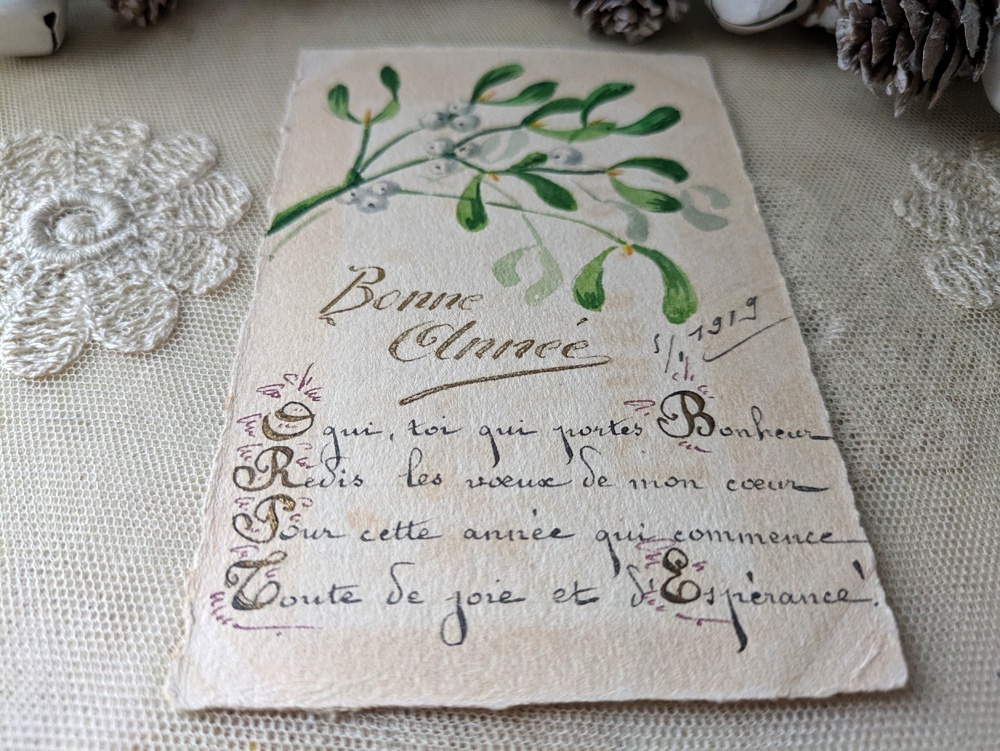 Bonne
Année
1/1 1919
O gui, toi qui portes Bonheur
Redis les vœux de mon cœur
Pour cette année qui commence
Toute de joie et d'Espérance!